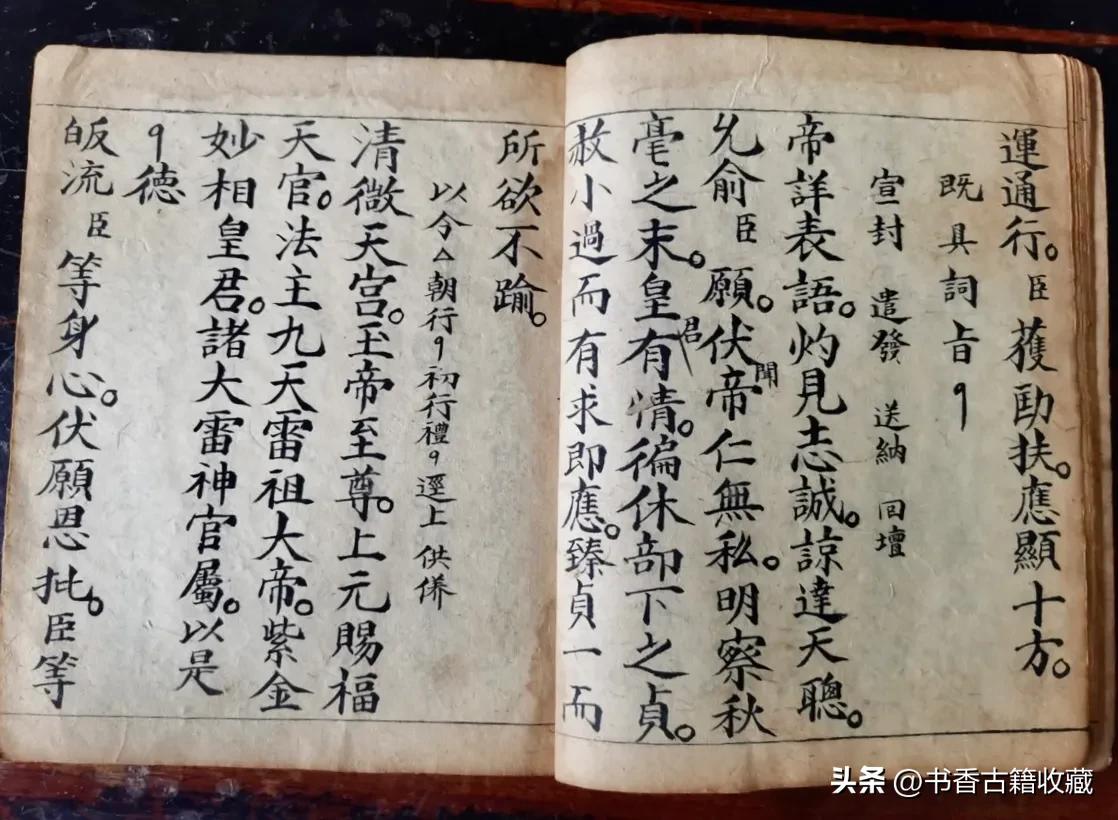 運通行。臣獲劻扶。應顯十方。
既具詞旨
宣封 遣發 送納 回壇
帝詳表語。灼見志誠。諒達天聰。
允俞臣願。伏聞帝仁無私。明察秋
毫之末。皇君有情。徧休部下之貞。
赦小過而有求即應。臻貞一而
所欲不踰。
以今△朝行 初行禮 逕上供養
清微天宮。玉帝至尊。上元賜福
天官。法主九天雷祖大帝。紫金
妙相皇君。諸大雷神官屬。以是
德
皈流臣等身心。伏願恩批。臣等
头条 @书香古籍收藏